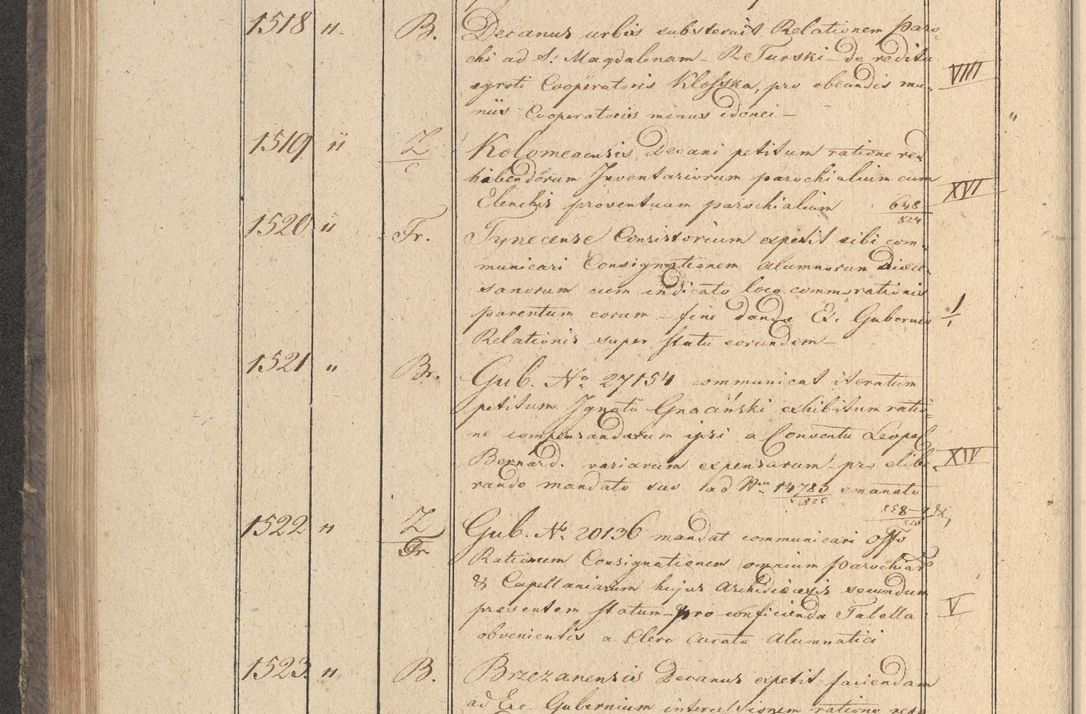 1518 " B. Decanus urbis substernit Relationem paro
chi ad S: Magdalenam - R. Turski - de reditu
egroti Cooperatoris Klosska, pro obeundis mu- VIII
niis Cooperatoris minus idonei -
1519 " Z Kolomeaensis Decani petitum ratione ex
C hibendorum Inventariorum parochialium cum
Elenchis proventuum parochialium 648 XVI
524
1520 " Fr. Tynecense Consistorium expetit sibi com-
municari Consignationem alumnorum dioece-
sanorum cum indicato loco commorationis
parentum eorum - fine dandae Exc. Gubernio 1/1
Relationis super statu eorundem -
1521 " Br. Gub. No 27154 communicat iteratum
petitum Ignatii Gnacinski exhibitum ratio
ne compensandarum ipsi a Conventu Leopol
Bernard. variarum expensarum - pro elibe- XIV
rando mandato suo ad Nrum 14783 emanato
825
858
1522 " Z Gub. No. 20136 mandat communicari Offo
Fr Rationum Consignationem omnium parochiar
& Capellaniarum hujus Archidioecesis secundum
praesentem statum - pro conficienda Tabella V
obvenientis a Clero Curato Alumnatici
1523. " B. Brzezanensis Decanus expetit faciendam
ad Exc. Gubernium intercessionem ratione